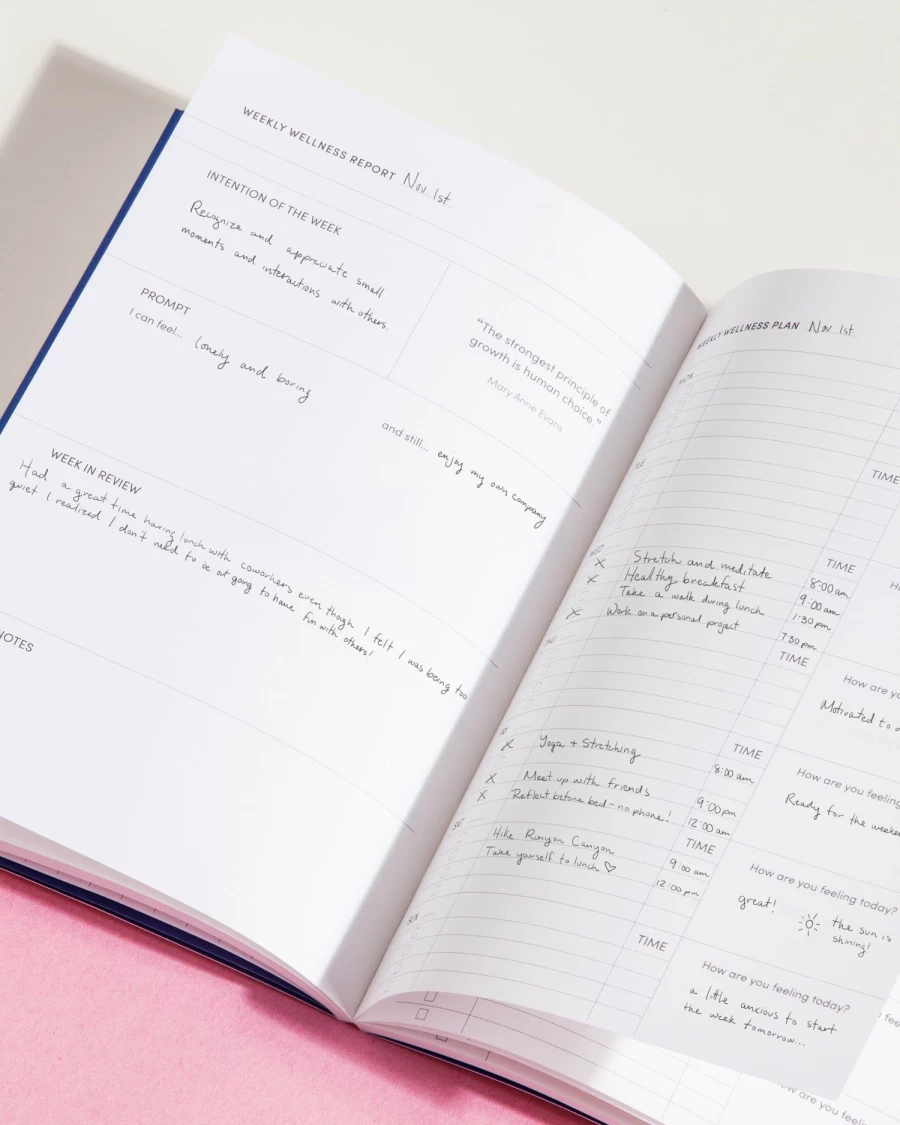 WEEKLY WELLNESS REPORT Nov 1st
INTENTION OF THE WEEK
Recognize and appreciate small
moments and interactions with others.
"The strongest principle of
growth is human choice."
Mary Anne Evans
PROMPT
I can feel... lonely and boring
and still... enjoy my own company
WEEK IN REVIEW
Had a great time having lunch with coworkers even though I felt I was being too
quiet I realized I don't need to be out going to have fun with others!
NOTES
WEEKLY WELLNESS PLAN Nov 1st
MON
TIME
TUE
TIME
WED
X Stretch and meditate 8:00 am
X Healthy breakfast 9:00 am
Take a walk during lunch 1:30 pm
X Work on a personal project 7:30 pm
THU
TIME
How are yo
Motivated to
FRI
TIME
X Yoga + Stretching 8:00 am
X Meet up with friends 9:00 pm
X Reflect before bed - no phone! 12:00 am
How are you feeling
Ready for the weeke
SAT
TIME
Hike Runyon Canyon 9:00 am
Take yourself to lunch ♡ 12:00 pm
How are you feeling today?
great! the sun is
shining!
SUN
TIME
How are you feeling today?
a little anxious to start
the week tomorrow...